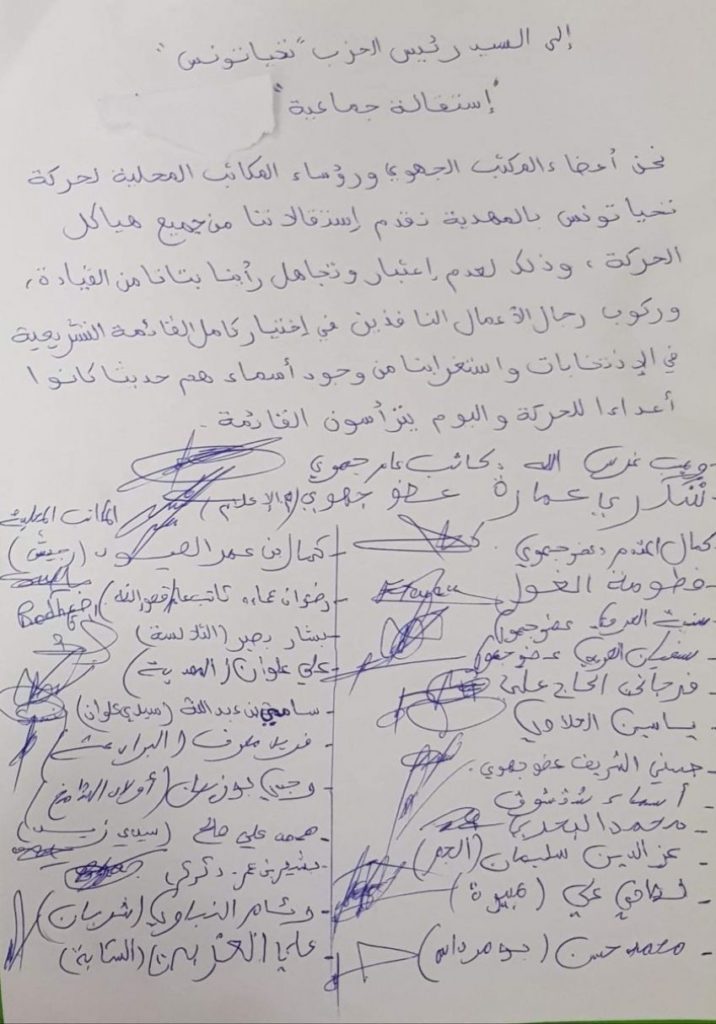 إلى السيد رئيس الحزب "تحيا تونس"
"إستقالة جماعية"
نحن أعضاء المكتب الجهوي ورؤساء المكاتب المحلية لحركة
تحيا تونس بالمهدية نقدم إستقالاتنا من جميع هياكل
الحركة، وذلك لعدم إعتبار وتجاهل رأينا بتاتا من القيادة،
وركوب رجال الأعمال النافذين في إختيار كامل القائمة التشريعية
في الإنتخابات واستغرابنا من وجود أسماء هم حديثا كانوا
أعداءا للحركة واليوم يترأسون القائمة.
غرس الله كاتب عام جهوي
شكري عمارة عضو جهوي (الإعلام)
كمال المقدم عضو جهوي
فطومة الغول
عضو جهوي
سفيان عضو جهوي
فرجاني الحاج علي
ياسين
حسني الشريف عضو جهوي
أسماء
محمد
عز الدين سليمان (الجم)
علي
محمد حسن (بومرداس)
المكاتب المحلية
- كمال بن عمر
- رضوان كاتب عام (قصور الساف)
- بشار
- علي علوان (المهدية)
- سامي بن عبد الله (سيدي علوان)
- فريد
- وجدي (أولاد الشامخ)
- علي صالح (سيدي زيد)
- بشير بن عمر
- وسام (شربان)
- علي (الشابة)